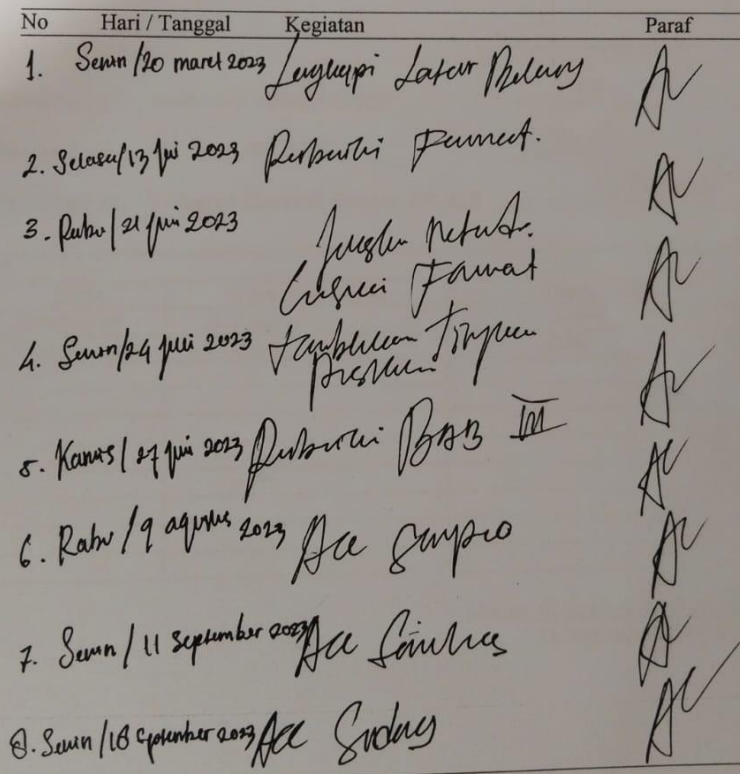 No Hari / Tanggal Kegiatan Paraf
1. Senin /20 maret 2023 Lengkapi Latar Belakang
2. Selasa/13 Juni 2023 Perbaiki Format.
3. Rabu/21 Juni 2023
Format
4. Senin/24 Juli 2023 Tambahkan Tinjauan
Pustaka
5. Kamis/27 2023 Perbaiki BAB III
6. Rabu /9 agustus 2023 Acc Sempro
7. Senin / 11 September 2023 Acc Semhas
8. Senin /18 September 2023 Acc Sidang